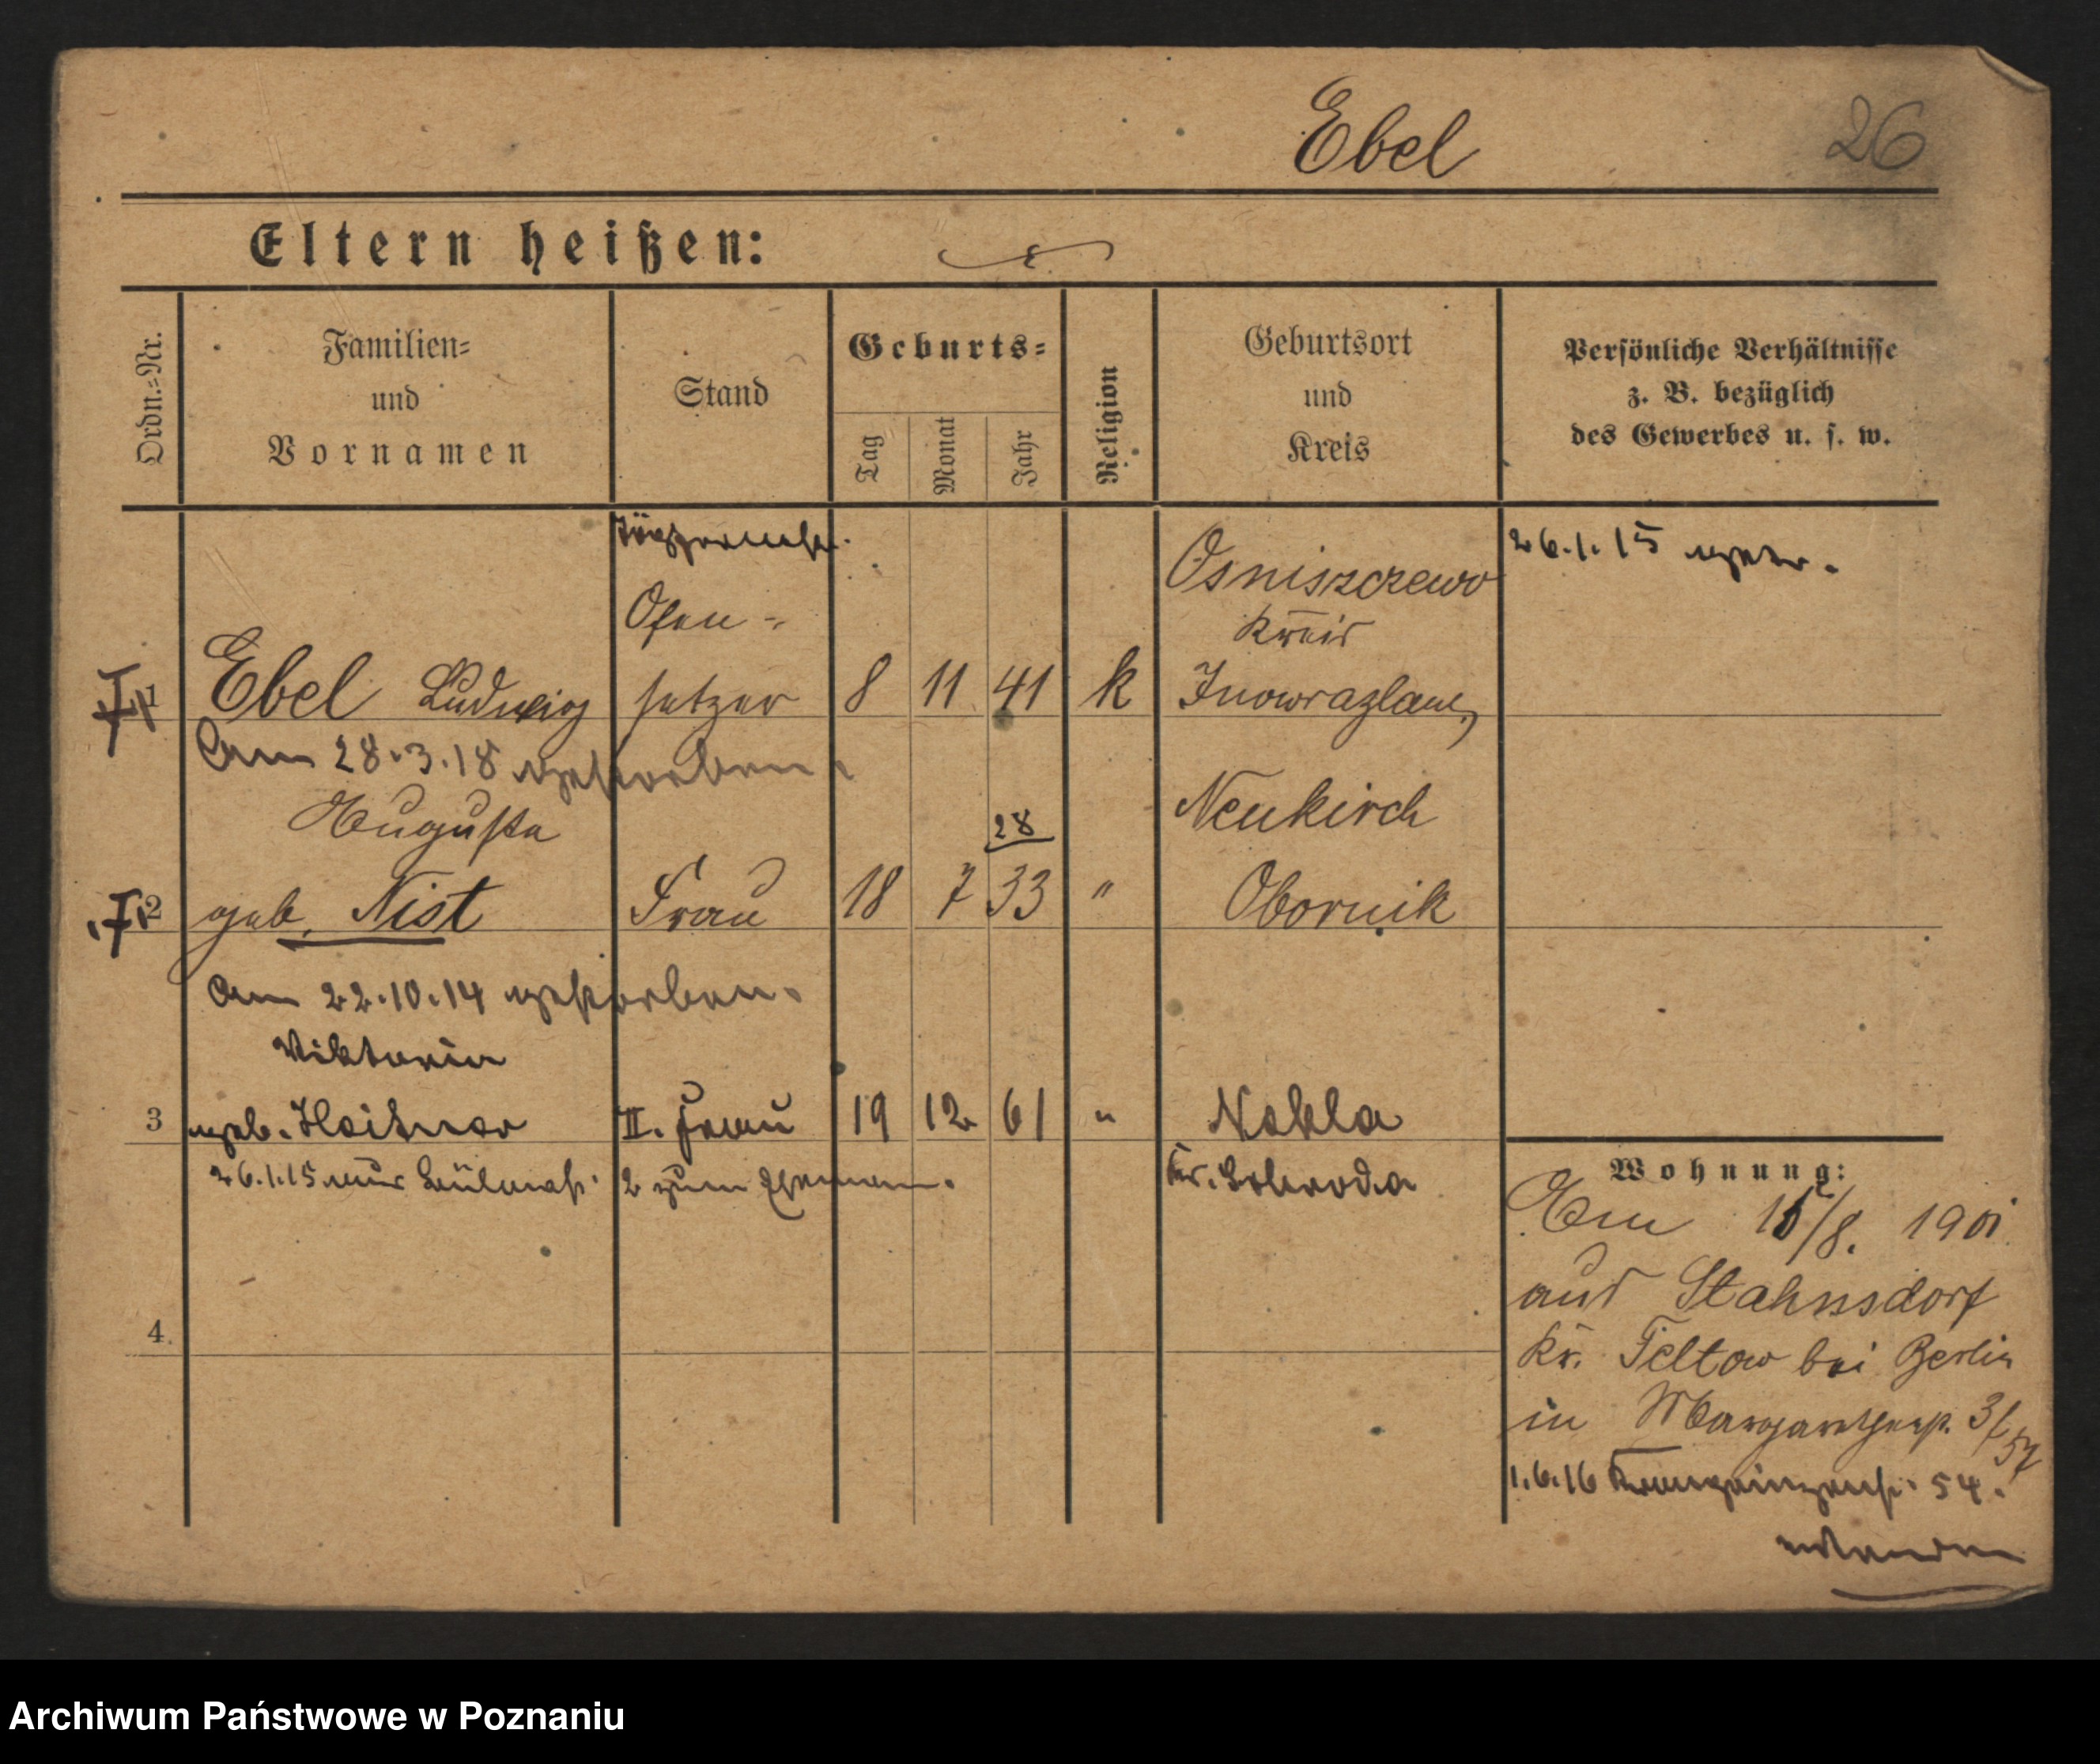 Ebel
26
Eltern heißen:
Ordn.-Nr.
Familien-
und
Vornamen
Stand
Geburts-
Tag
Monat
Jahr
Religion
Geburtsort
und
Kreis
Persönliche Verhältnisse
z. B. bezüglich
des Gewerbes u. s. w.
26.1.15
Osniszczewo
Ofen-
Kreis
1 Ebel Ludwig setzer 8 11 41 k Inowrazlaw
Am 28.3.18 gestorben.
Augusta
Neukirch
28
2 geb. Nist Frau 18 7 33 " Obornik
Am 22.10.14 gestorben.
Viktoria
3 geb. II. Frau 19 12 61 " Nekla
26.1.15 2
Kr. Schroda
4
Wohnung:
Am /8. 1901
aus Stahnsdorf
Kr. Teltow bei Berlin
in Margarethenstr. 3
1.6.16 54.
Archiwum Państwowe w Poznaniu